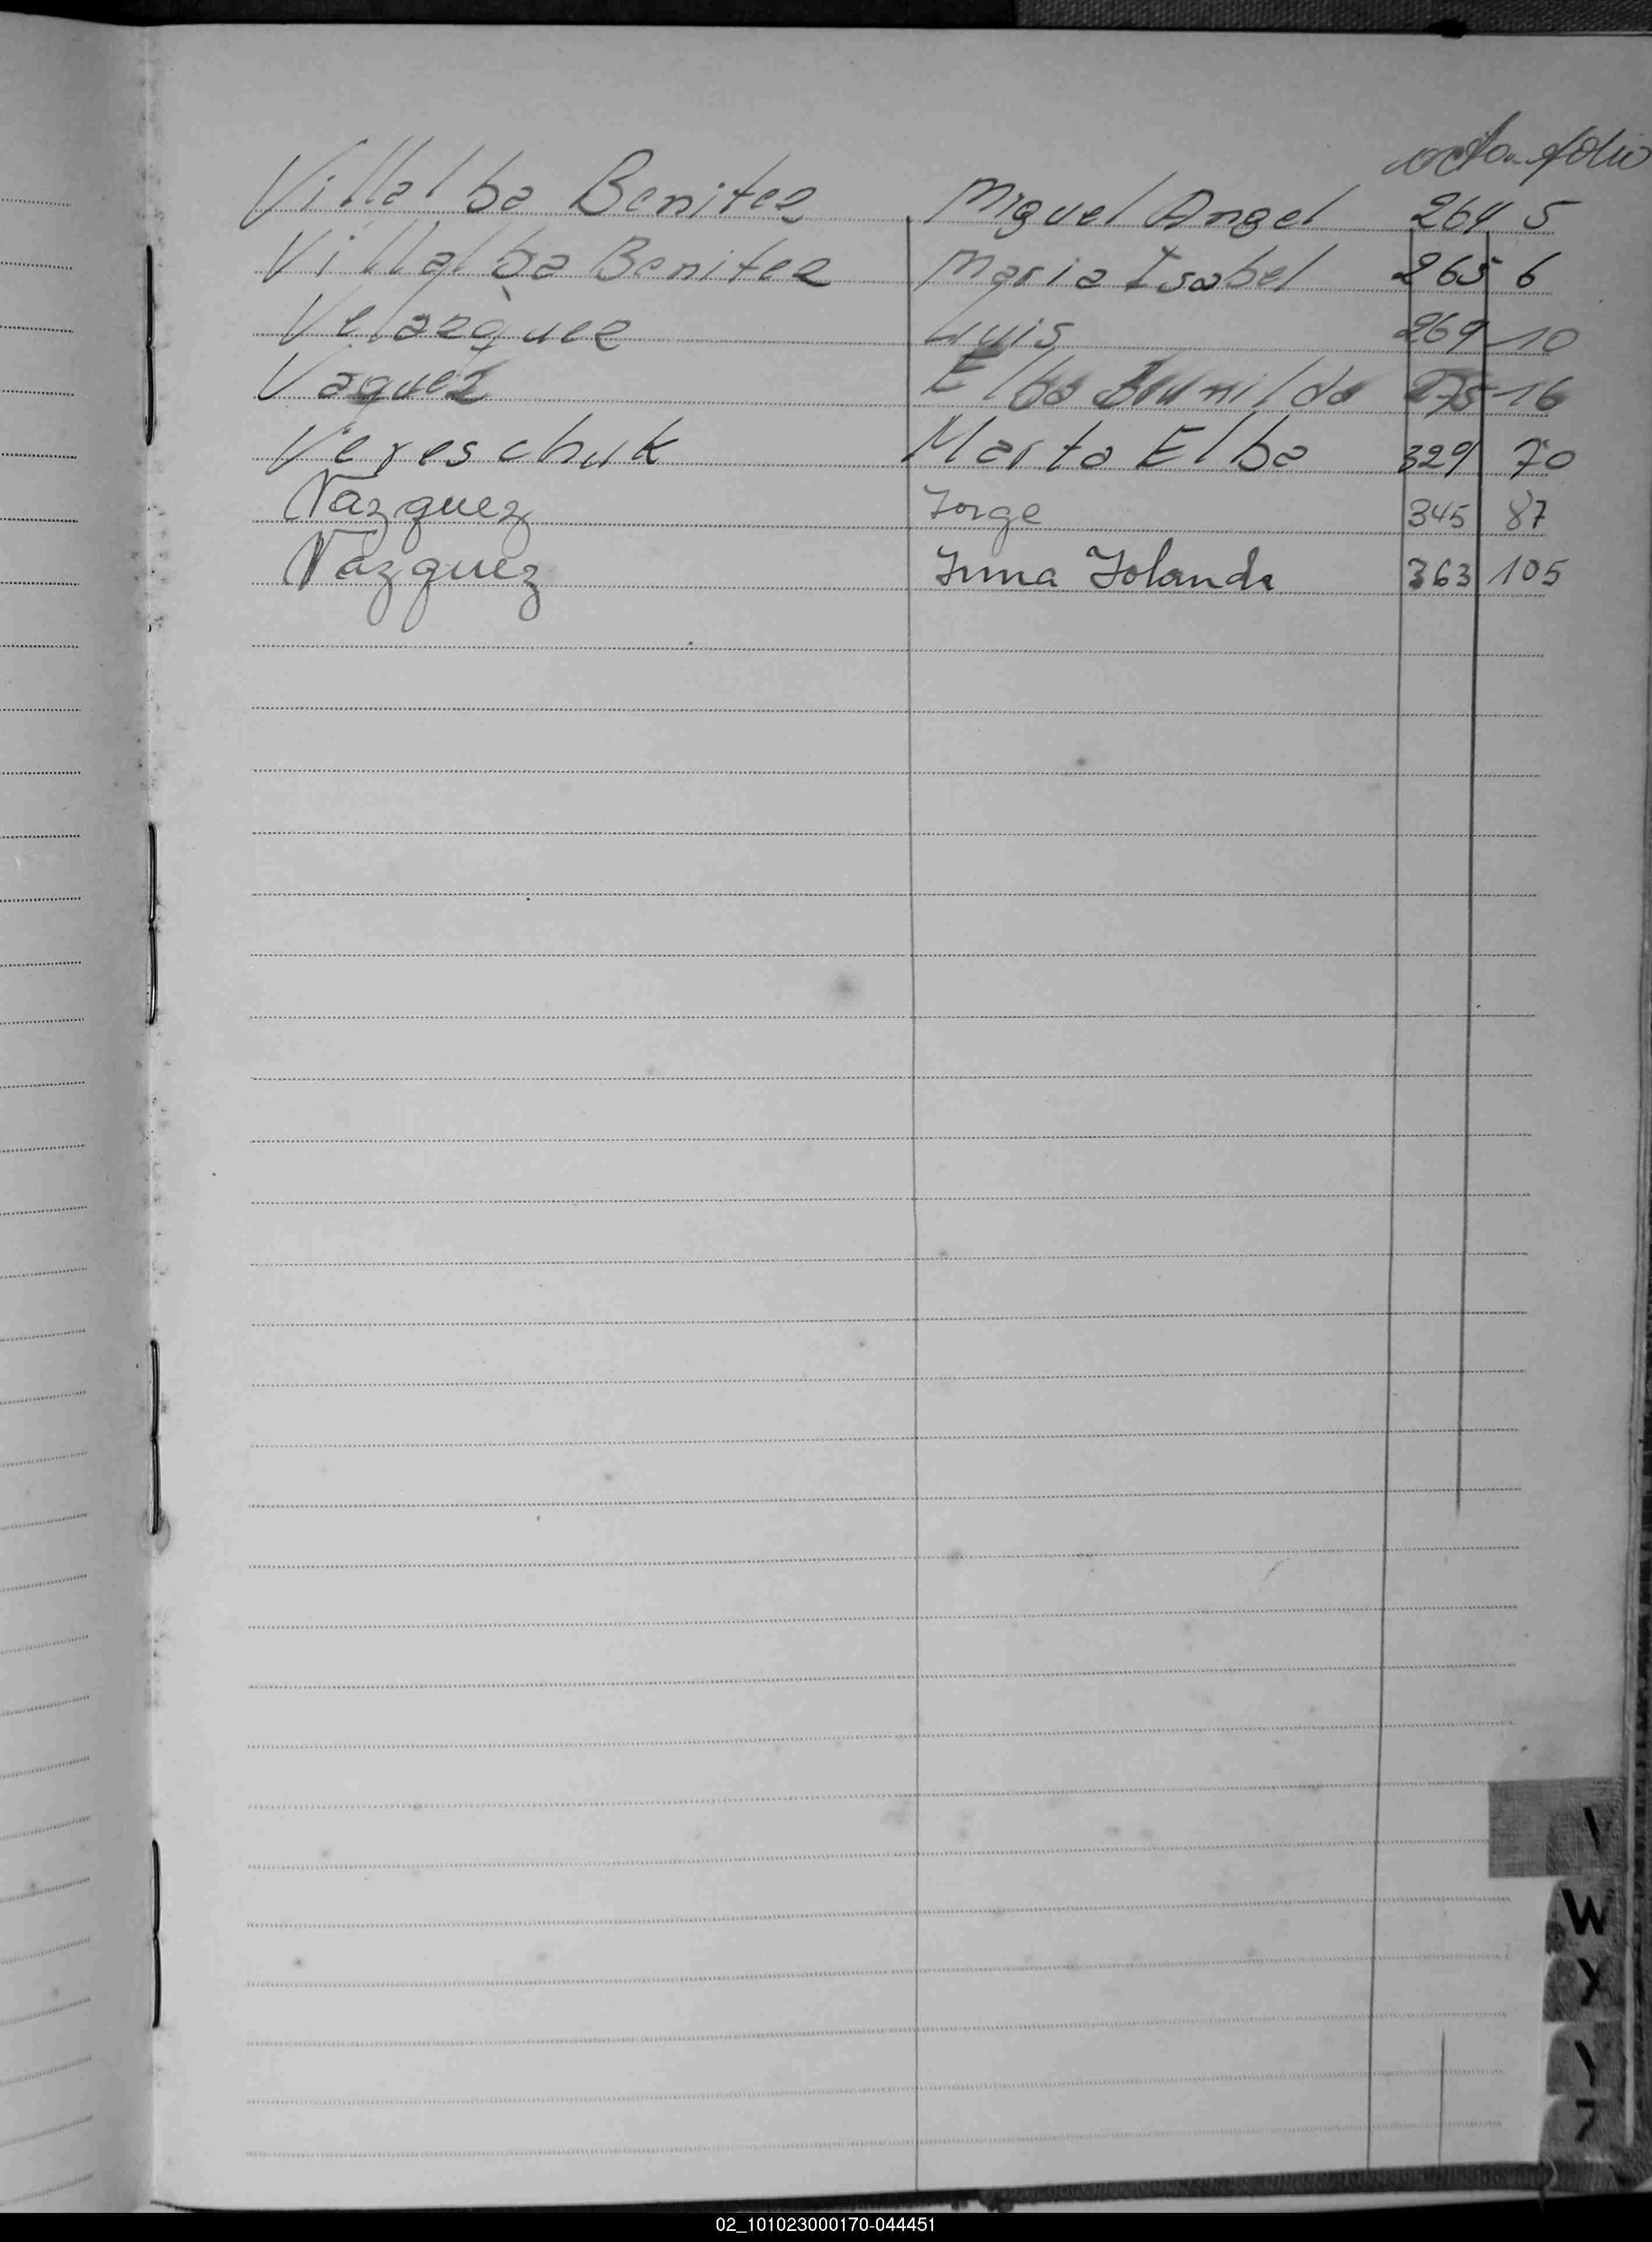 acta folio
Villalba Benitez Miguel Angel 264 5
Villalba Benitez Maria Isabel 265 6
Velazquez Luis 269 10
Vaquez Elba 275 16
Vereschuk Marta Elba 329 70
Vazquez Jorge 345 87
Vazquez Irma Iolanda 363 105
V
W
X
Y
Z
02_101023000170-044451